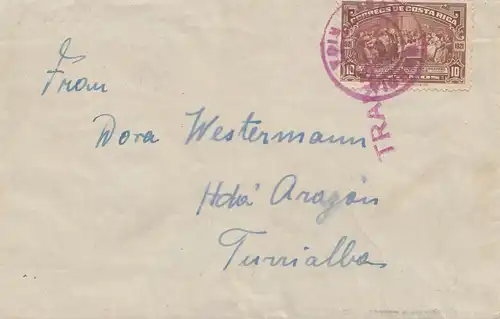 CORREOS DE COSTA RICA
10 10
TRA
Frau
Dora Westermann
Hdá Aragón
Turrialba